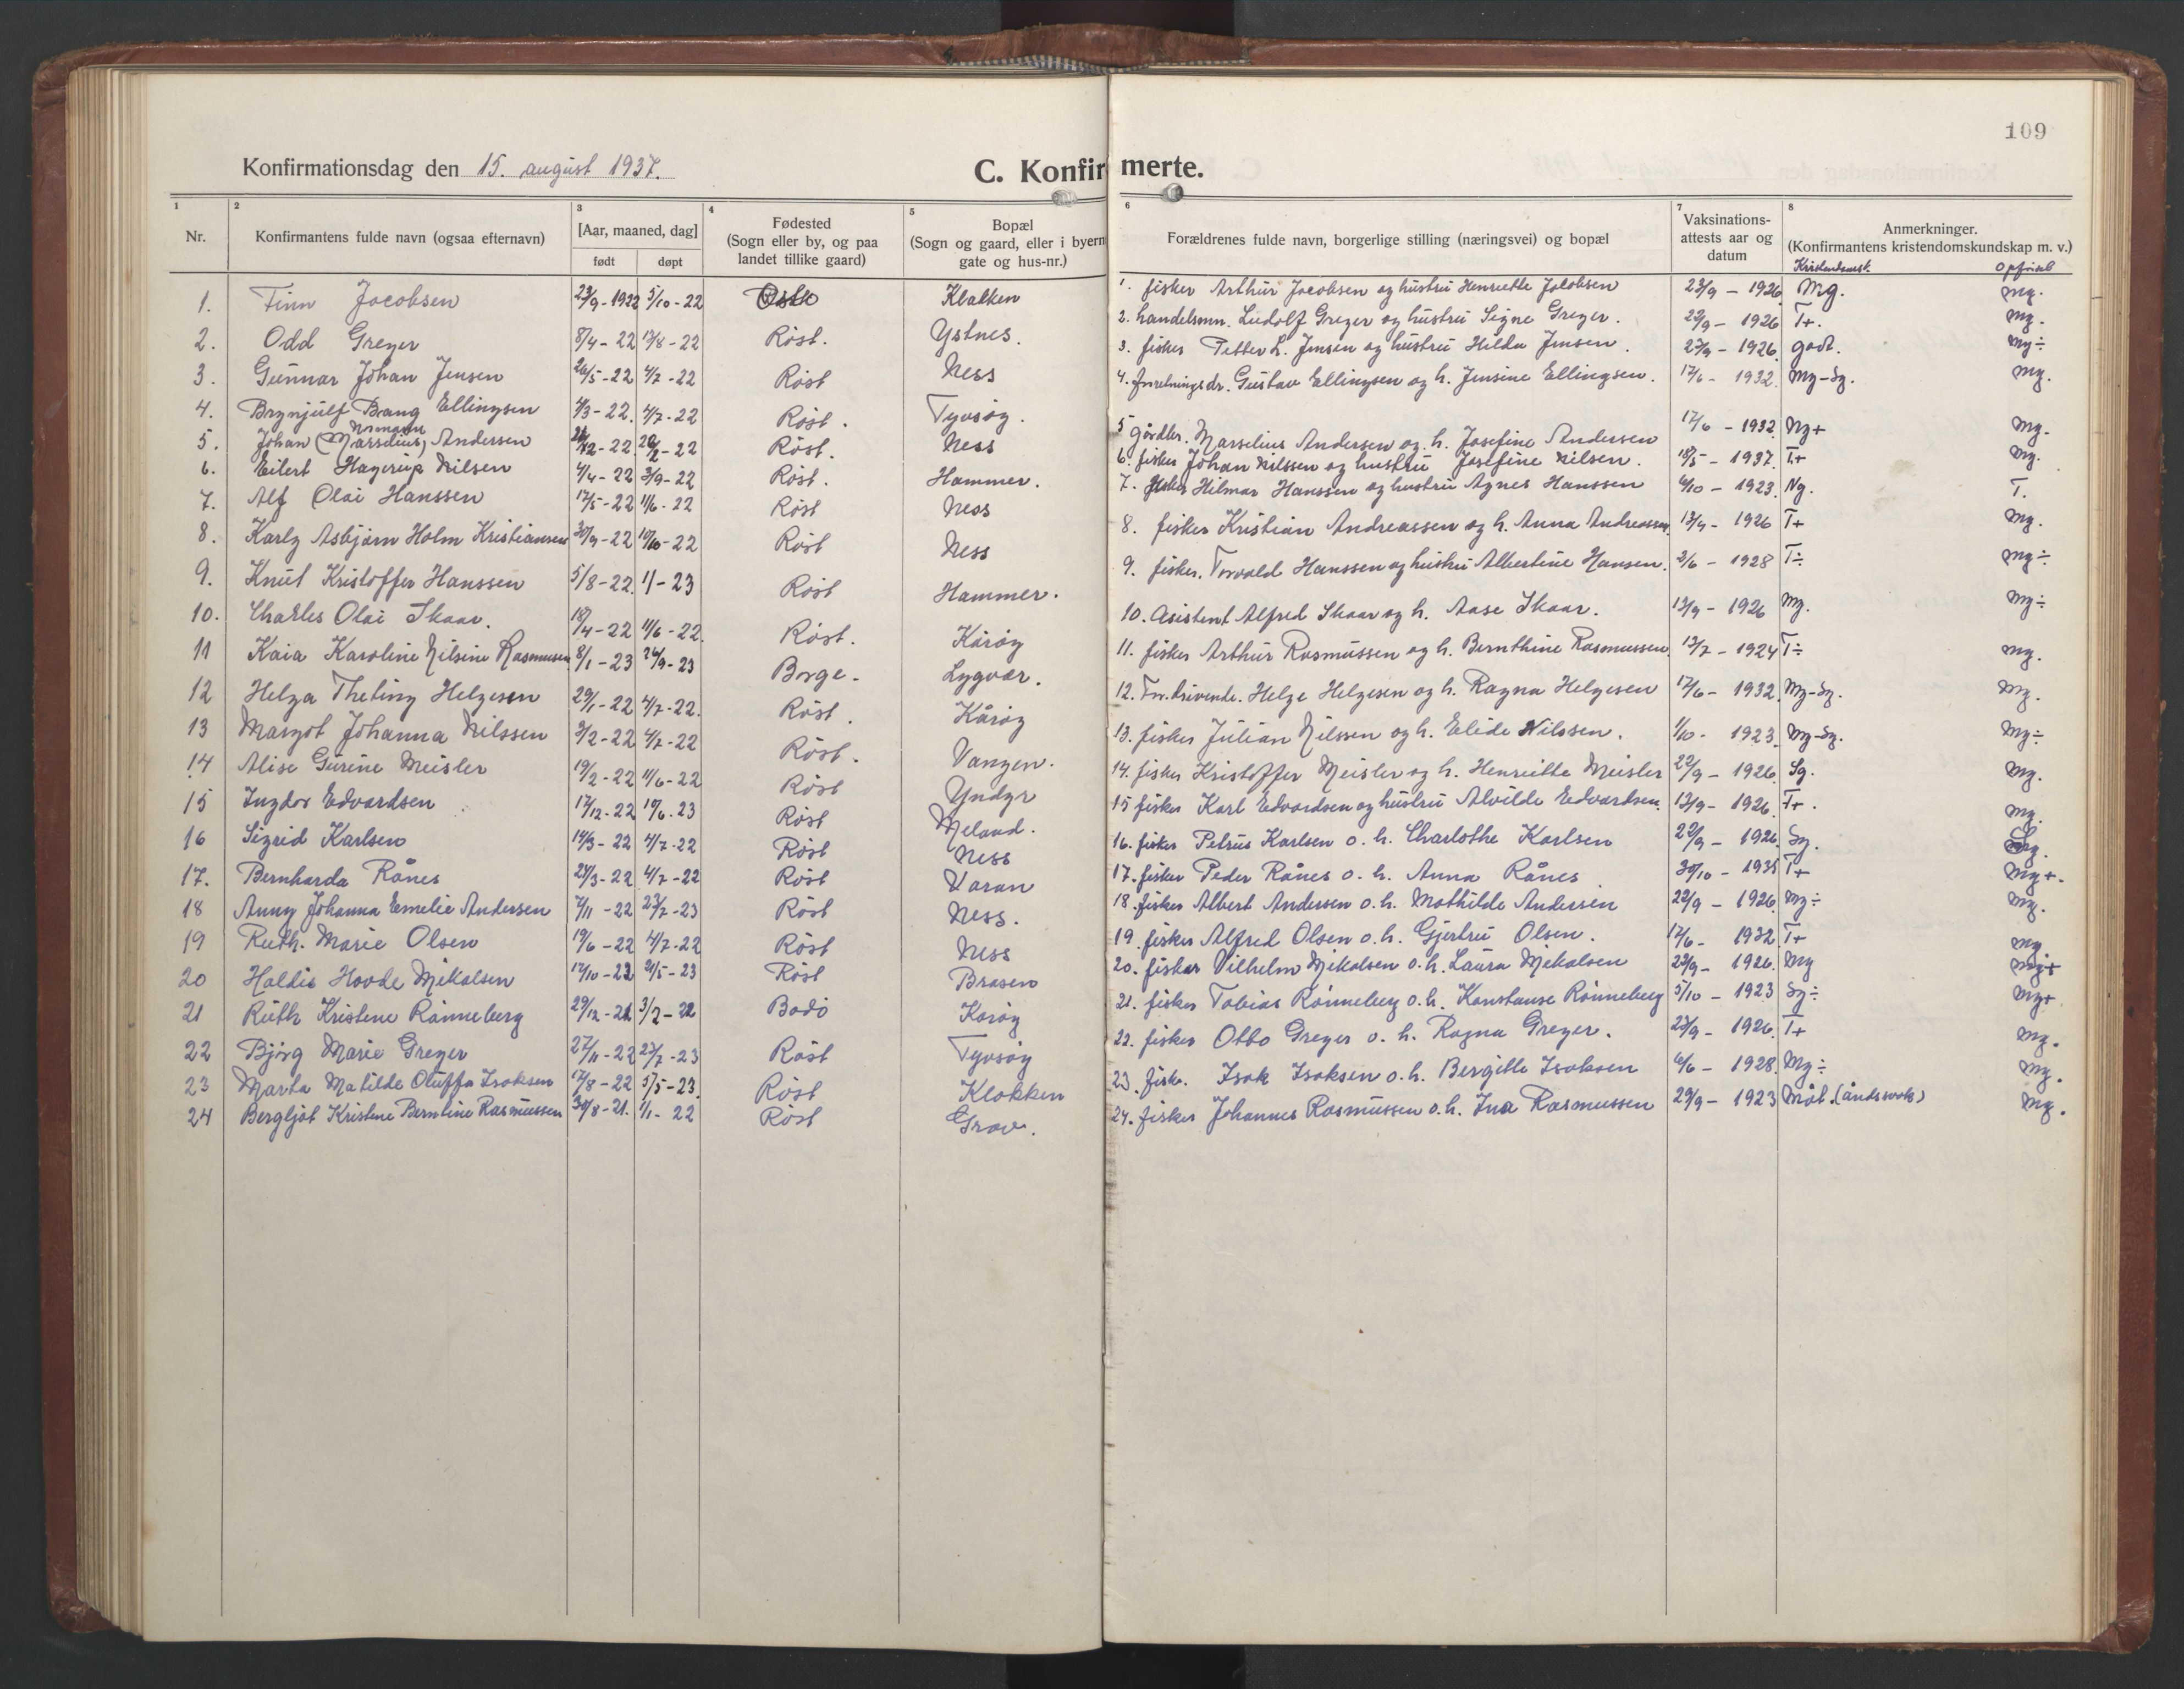 109
Konfirmationsdag den 15. august 1937. C. Konfirmerte.
1 2 3 4 5 6 7 8
Nr. Konfirmantens fulde navn (ogsaa efternavn) [Aar, maaned, dag] født døpt Fødested (Sogn eller by, og paa landet tillike gaard) Bopæl (Sogn og gaard, eller i byern gate og hus-nr.) Forældrenes fulde navn, borgerlige stilling (næringsvei) og bopæl Vaksinations-attests aar og datum Anmerkninger. (Konfirmantens kristendomskundskap m. v.)
Kristendomsk. Opførsel
1. Finn Jacobsen 23/9-1922 5/10-22 Klakken 1. fisker Arthur Jacobsen og hustru Henriette Jacobsen 23/9 - 1926 Mg. mg.
2. Odd Greger 8/4-22 13/8-22 Röst. Ystnes. 2. handelsmn. Ludolf Greger og hustru Signe Greger. 22/9 - 1926 T+. mg.
3. Gunnar Johan Jensen 26/5-22 4/7-22 Röst Ness 3. fisker Petter L. Jensen og hustru Hilda Jensen. 1926. godt. mg÷
4. Brynjulf Bang Ellingsen 4/3-22. 4/7-22 Röst. Tyvsöy. 4. Gustav Ellingsen og h. Jensine Ellingsen. 17/6 - 1932. Mg-Sg. mg.
5. Johan (Marselius) Normann Andersen -22. -22 Röst. Ness 5 Gårdbr. Marselius Andersen og h. Josefine Andersen 17/6 - 1932. Ng+ mg.
6. Eilert Hagerup Nilsen 4/4-22 3/9-22 Röst. Hammer. 6. fisker Johan Nilssen og hustru Josefine Nilsen. 18/5 - 1937. T+ mg.
7. Alf Olai Hanssen 17/5-22 11/6-22 Röst Ness 7. fisker Hilmar Hanssen og hustru Agnes Hanssen 1923. Ng. T.
8. Karly Asbjörn Holm Kristiansen 30/9-22 -22 Röst Ness 8. fisker Kristian Andreassen og h. Anna Andreassen. 13/9 - 1926 T+ mg.
9. Knut Kristoffer Hanssen 5/8-22. 1/-23 Röst Hammer. 9. fisker. Torvald Hanssen og hustru Albertine Hansen. 2/6 - 1928 T÷ mg÷
10. Charles Olai Skaar. 18/4-22 11/6-22. Röst. Kåröy 10. Asistent Alfred Skaar og h. Aase Skaar. 13/9 - 1926 Mg. mg÷
11 Kaia Karoline Nilsine Rasmussen 8/1-23 24/9-23 Borge. Lygvær. 11. fisker Arthur Rasmussen og h. Bernthine Rasmussen. 13/7 - 1924 T÷ mg.
12 Helga Theting Helgesen 29/1-22 4/7-22. Röst. Kåröy 12. Helge Helgesen og h. Ragna Helgesen 17/6 - 1932. Mg-Sg. mg.
13 Margot Johanna Nilssen 3/2-22 4/7-22 Röst. Vangen. 13. fisker Julian Nilssen og h. Elide Nilssen. 1/10 - 1923. Mg-Sg. mg÷
14 Alise Gurine Meisler 19/2-22 11/6-22 Röst Yndyr 14. fisker Kristoffer Meisler og h. Henriette Meisler 22/9 - 1926. Sg. mg.
15 Ingdor Edvardsen 17/12-22 10/6-23 Röst Meland. 15 fisker Karl Edvardsen og hustru Alvilde Edvardsen. 13/9 - 1926. T+. mg.
16 Sigrid Karlsen 14/3-22 4/7-22 Röst Ness 16. fisker Petrus Karlsen o. h. Charlothe Karlsen 22/9 - 1926. Sg.
17. Bernharda Rånes 24/3-22 4/7-22 Röst Varan 17. fisker Peder Rånes o. h. Anna Rånes 30/10 - 1935 T+ Mg+.
18 Anny Johanna Emelie Andersen 7/11-22 23/7-23 Röst Ness. 18. fisker Albert Andersen o. h. Mathilde Andersen 22/9 - 1926. Mg÷ mg.
19 Ruth. Marie Olsen 19/6-22 4/7-22 Röst Ness 19. fisker Alfred Olsen o. h. Gjertru Olsen. 17/6 - 1932. T+ mg.
20 Haldis Hovde Mikalsen 17/10-22 21/5-23 Röst Brasen 20. fisker Vilhelm Mikalsen o. h. Laura Mikalsen 22/9 - 1926. Mg mg+
21 Ruth Kristene Rönneberg 29/12-21 3/2-22 Bodö Kåröy 21. fisker Tobias Rönneberg o. h. Konstanse Rönneberg 5/10 - 1923 Sg÷ mg+
22 Björg Marie Greger 27/11-22 23/7-23 Röst Tyvsöy 22. fisker Otto Greger o. h. Ragna Greger. 23/9 - 1926. T+ mg.
23 Marta Matilde Oluffa Isaksen 17/8-22 5/5-23. Röst Klakken 23. fisk. Isak Isaksen o. h. Bergitte Isaksen 6/6 - 1928. Mg÷ mg.
24 Bergljot Kristene Berntine Rasmussen 30/8-21. 1/1-22 Röst Grav. 24. fisker Johannes Rasmussen o. h. Ina Rasmussen 29/9 - 1923 Måt. (åndssvak) mg.